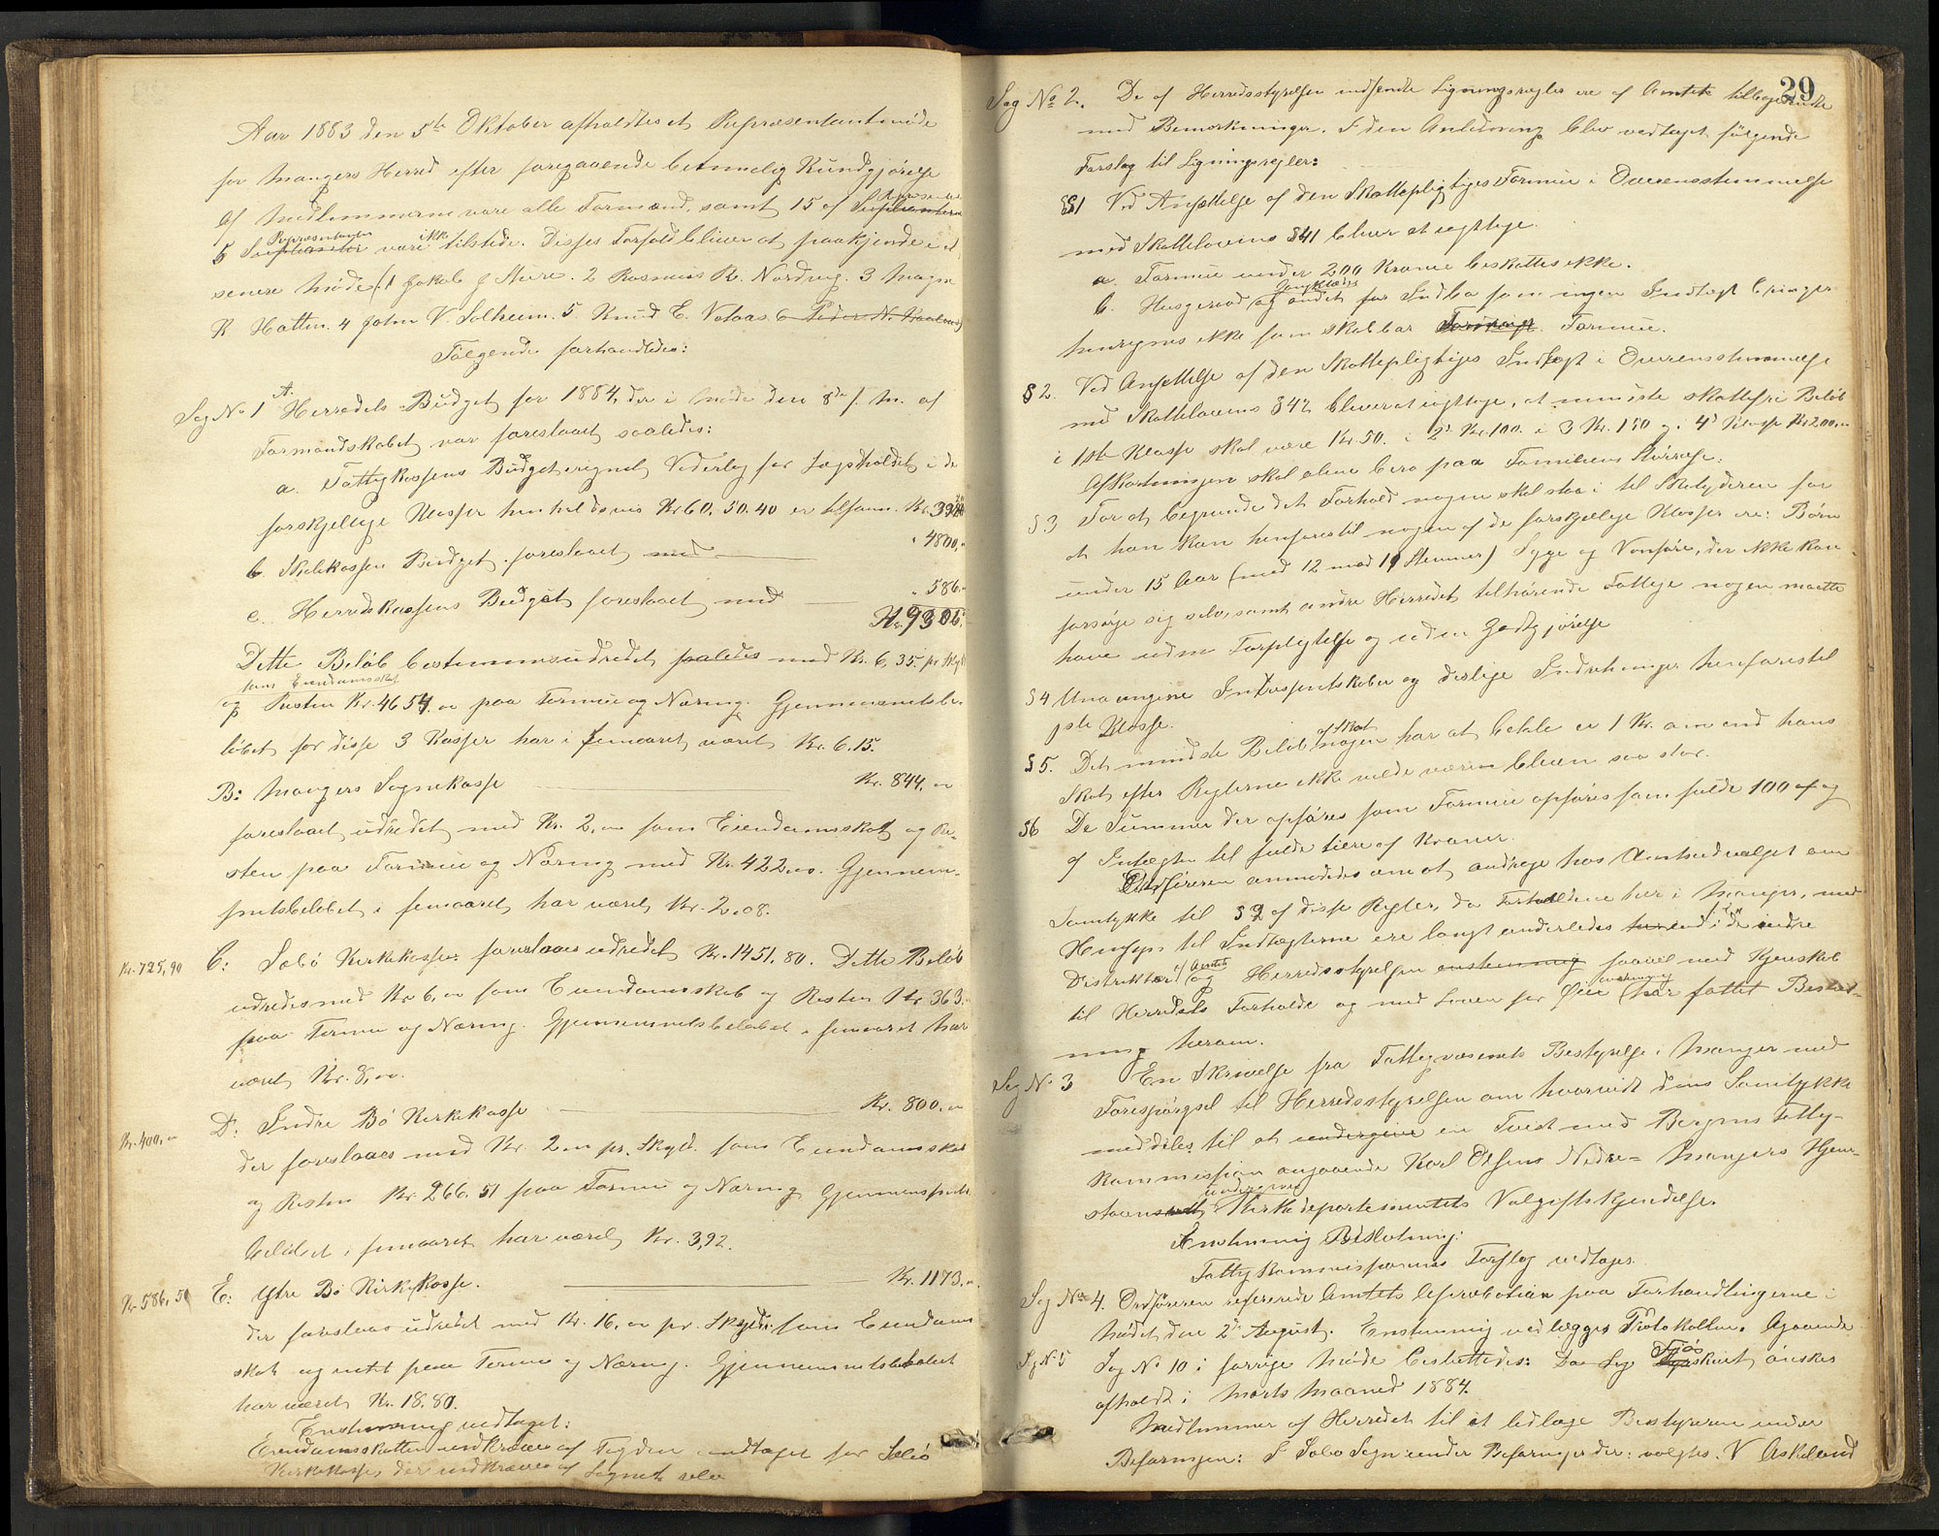 Aar 1883 den 5te Oktober afholdtes et Repræsentantmøde
for Mangers Herred efter foregaaende betimelig Kundgjørelse
Af Medlemmerne vare alle Formænd, samt 15 af Suplianterne Repræsentan
5 Suplianter Repræsentanter vare ikke tilstede. Disses Forfald bliver at paakjende i et
senere Møde (1 Jakob J Aure. 2 Rasmus R. Nordvig. 3 Magne
R Hatten. 4 John V. Solheim. 5. Knud E. Votaas 6 Peder N.
Følgende forhandledes:
Sag No 1 A. Herredets Budget for 1884, der i Møde den 8de f. M. af
Formandskabet var foreslaaet saaledes:
a. Fattigkassens Budget, iregnet Vederlag for Lægsholdet i de
forskjellige Klasser henholdsvis Kr 60. 50. 40 er tilsam. Kr.
b. Skolekassens Budget foreslaaet med " 4800,"
c. Herredskassens Budget foreslaaet med " 586.
Kr. 9306.
Dette Beløb bestemmes udredet saaledes med Kr. 6,35. pr Skyld
som Eiendomsskat
og Resten Kr. 4654. " paa Formue og Næring. Gjennemsnitsbe-
løbet for disse 3 Kasser har i femaaret været Kr. 6.15.
B: Mangers Sognekasse Kr. 844, "
foreslaaet udredet med Kr. 2, " som Eiendomsskat og Re-
sten paa Formue og Næring med Kr. 422,00. Gjennem-
snitsbeløbet i femaaret har været Kr. 2.08.
Kr. 725,90 C: Sæbø Kirkekasse foreslaaes udredet Kr. 1451.80. Dette Beløb
udredes med Kr 6, " som Eiendomsskat og Resten Kr 363.
paa Formue og Næring. Gjennemsnitsbeløbet i femaaret har
været Kr. 8, ".
Kr. 400, " D: Indre Bø Kirkekasse Kr. 800, "
der foreslaaes med Kr. 2 " pr. Skyld. som Eiendomsskat
og Resten Kr 266.51 paa Formue og Næring Gjennemsnits
beløbet i femaaret har været Kr. 3,92.
Kr 586,50 E: Ytre Bø Kirkekasse. Kr. 1173. "
der foreslaaes udredet med Kr. 16, " pr. Skyld: som Eiendoms
skat og intet paa Formue og Næring. Gjennemsnitsbeløbet
har været Kr. 18.80.
Enstemmig vedtaget:
Eiendomsskatten indkræves af Fogden undtaget for Sæbø
Kirkekasse, der indkræves af Sognet selv
29
Sag No 2. De af Herredsstyrelsen indsendte Ligningsregler ere af Amtet tilbagesendte
med Bemærkninger. I den Anledning blev vedtaget følgende
Forslag til Ligningsregler:
§1 Ved Ansættelse af den Skattepligtiges Formue i Overensstemmelse
med Skattelovens §41 bliver at iagttage.
a. Formue under 200 Kroner beskattes ikke.
b. Husgeraad og andet Gangklæder far Indbo som ingen Indtægt bringer
henregnes ikke som skatbar Formue.
§2. Ved Ansættelse af den Skattepligtiges Indtægt i Overensstemmelse
med Skattelovens §42 bliver at iagttage, at mindste skattefri Beløb
i 1ste Klasse skal være Kr. 50. i 2den Kr. 100. i 3 Kr. 150 og 4de Klasse Kr 200, "
Afkortningen skal alene bero paa Familiens Størrelse.
§3 For at begrunde det Forhold nogen skal staa i til Skatyderen for
at han kan henføres til nogen af de forskjellige Klasser ere: Børn
under 15 Aar (med 12 mod 19 Stemmer) Syge og Vanføre, der ikke kan
forsørge sig selv, samt andre Herredet tilhørende Fattige nogen maatte
have uden Forpligtelse og uden Godtgjørelse
§4 Unavngivne Interessentskaber og deslige Indretninger henføres til
1ste Klasse.
§5. Det mindste Beløb nogen af Skat har at betale er 1 Kr. om end hans
Skat efter Reglerne ikke vilde været bleven saa stor.
§6 De Summer der opføres som Formue opføres som fulde 100 af og
af Indtægter til fulde tiere af Kroner.
Ordføreren anmodedes om at andrage hos Amtsudvalget om
Samtykke til §2 af disse Regler, da Forholdene her i Manger, med
Hensyn til Indtægterne ere langt anderledes end i de indre
Distrikter i Amtet og Herredsstyrelsen enstemmig saavel med Kjenskab
til Herredets Forholde og med Loven for Øie enstemmig har fattet Beslut-
ning herom.
Sag No 3 En Skrivelse fra Fattigvæsenets Bestyrelse i Manger med
Forespørgsel til Herredsstyrelsen om hvorvidt dens Samtykke
meddeles til at undergive en Tvist med Bergens Fattig-
kommission angaaende Karl Olsens Nedre-Mangers Hjem-
stavnsret undergives Kirkedepartementets Voldgiftskjendelse.
Enstemmig Beslutning:
Fattigkommissionens Forslag vedtages.
Sag No 4. Ordføreren refererede Amtets Approbation paa Forhandlingerne i
Mødet den 2de August. Enstemmig vedlægges Protokollen. Agaaende
Sag No 5 Sag No 10 i forrige Møde besluttedes: Da Sag ønskes
afholdt i Marts Maaned 1884.
Medlemmer af Herredet til at ledsage Bestyreren under
Befaringen: I Sæbø Sogn under Befaringer der: valgtes. N Askeland